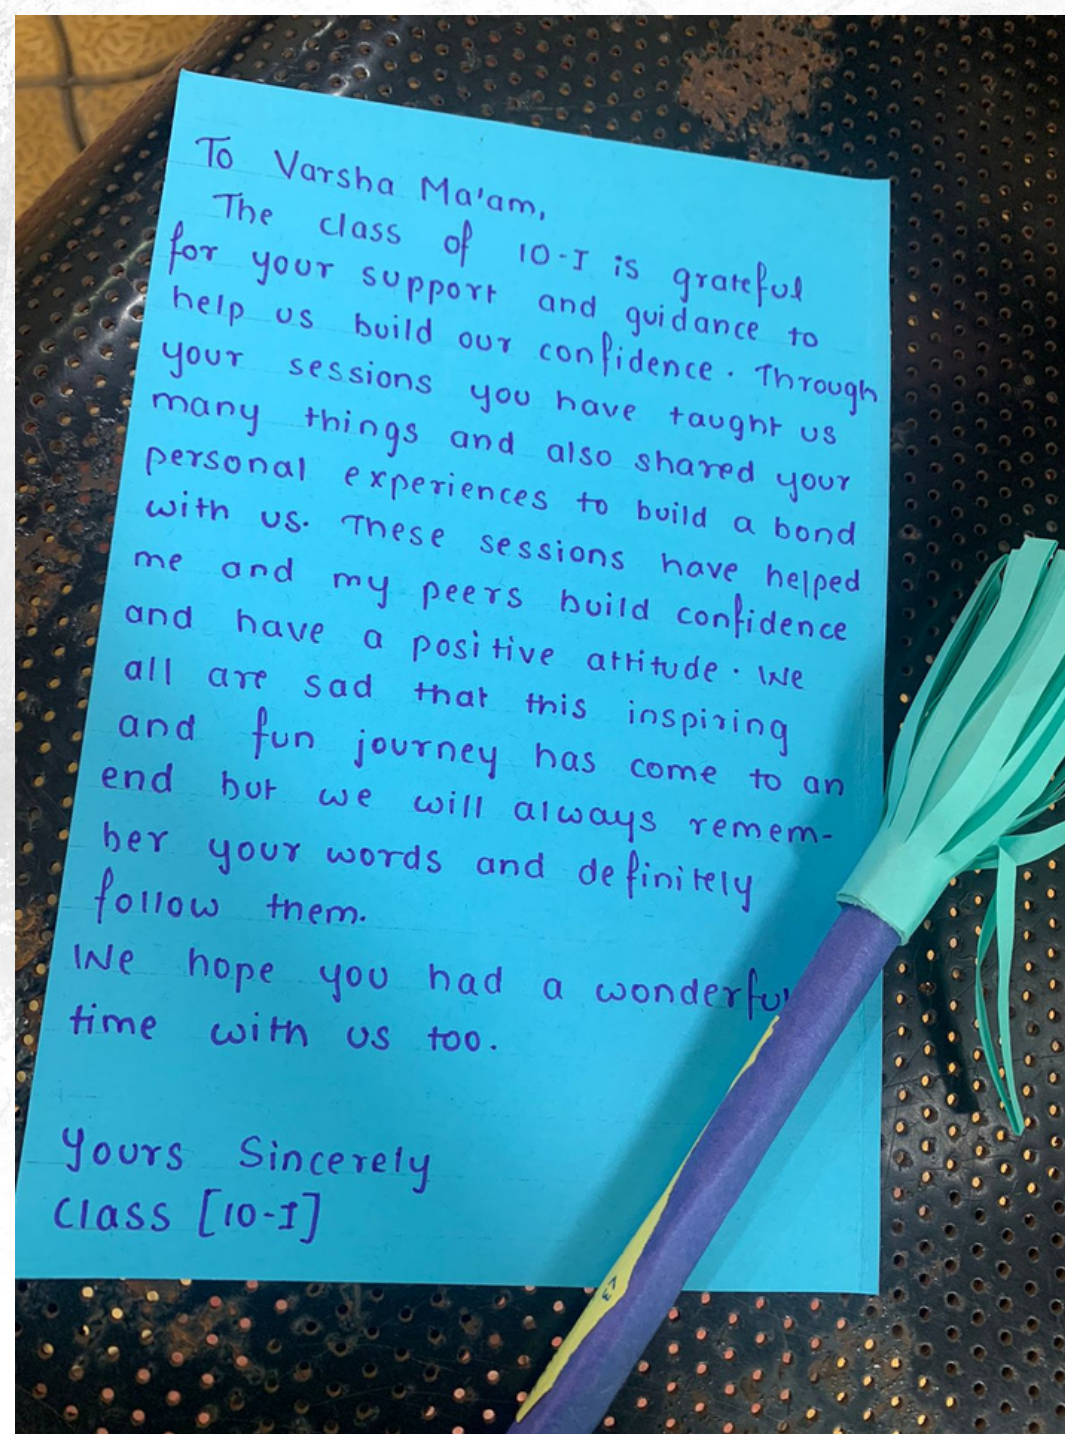 To Varsha Ma'am,
The class of 10-I is grateful
for your support and guidance to
help us build our confidence. Through
your sessions you have taught us
many things and also shared your
personal experiences to build a bond
with us. These sessions have helped
me and my peers build confidence
and have a positive attitude. We
all are sad that this inspiring
and fun journey has come to an
end but we will always remem-
ber your words and definitely
follow them.
We hope you had a wonderful
time with us too.
Yours Sincerely
Class [10-I]
<3